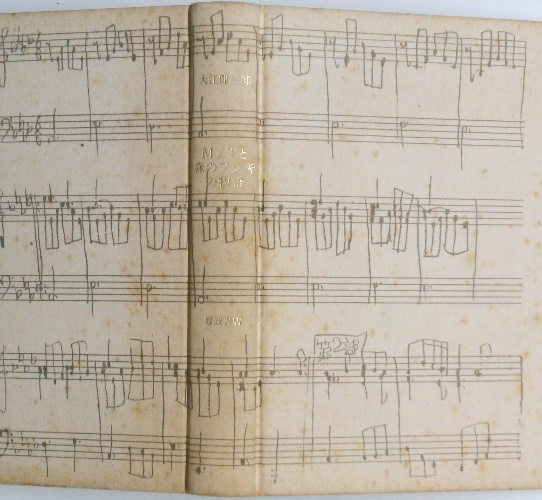 大江健三郎
M/Tと
森のフシギ
の物語
岩波書店
第2部